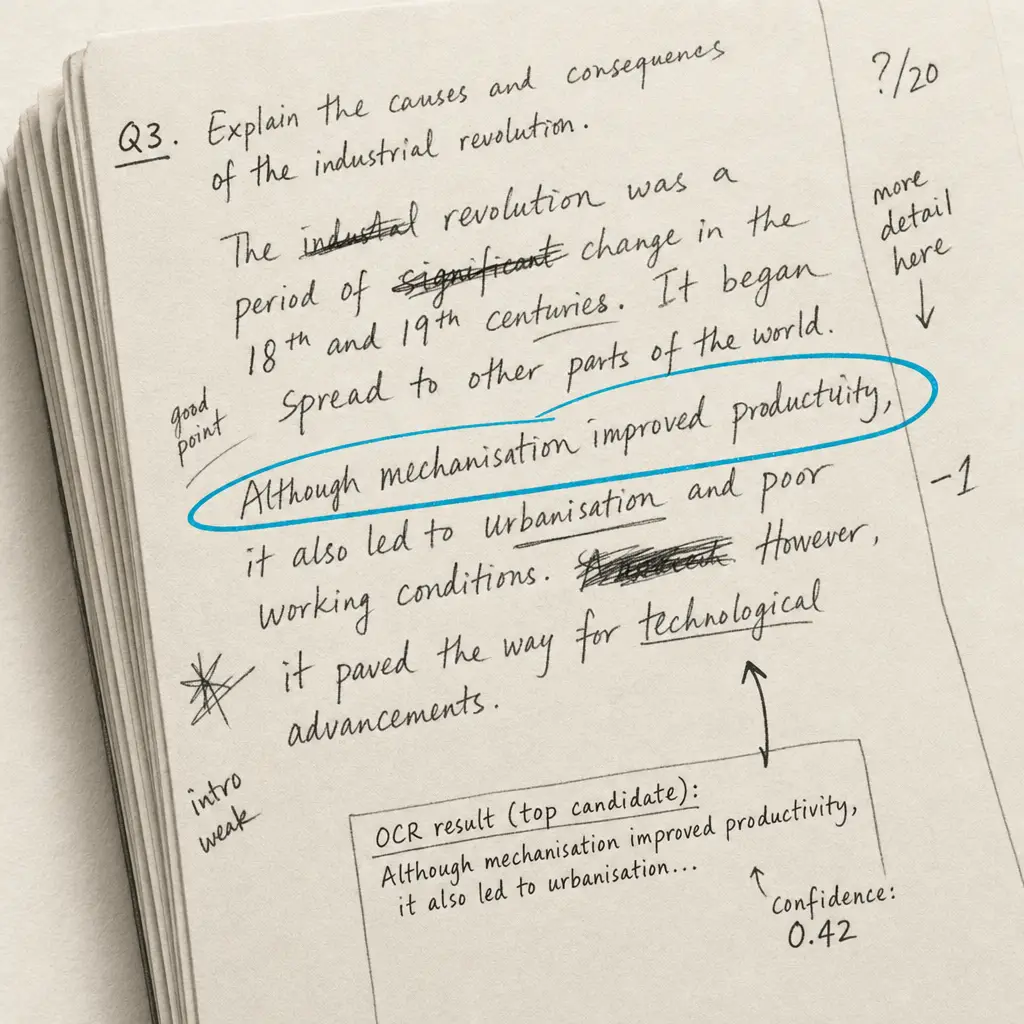 Q3. Explain the causes and consequences
of the industrial revolution.
?/20
The industal revolution was a
period of significant change in the
18th and 19th centuries. It began
spread to other parts of the world.
more
detail
here
good
point
Although mechanisation improved productivity,
it also led to urbanisation and poor
-1
working conditions. However,
it paved the way for technological
advancements.
intro
weak
OCR result (top candidate):
Although mechanisation improved productivity,
it also led to urbanisation...
Confidence:
0.42